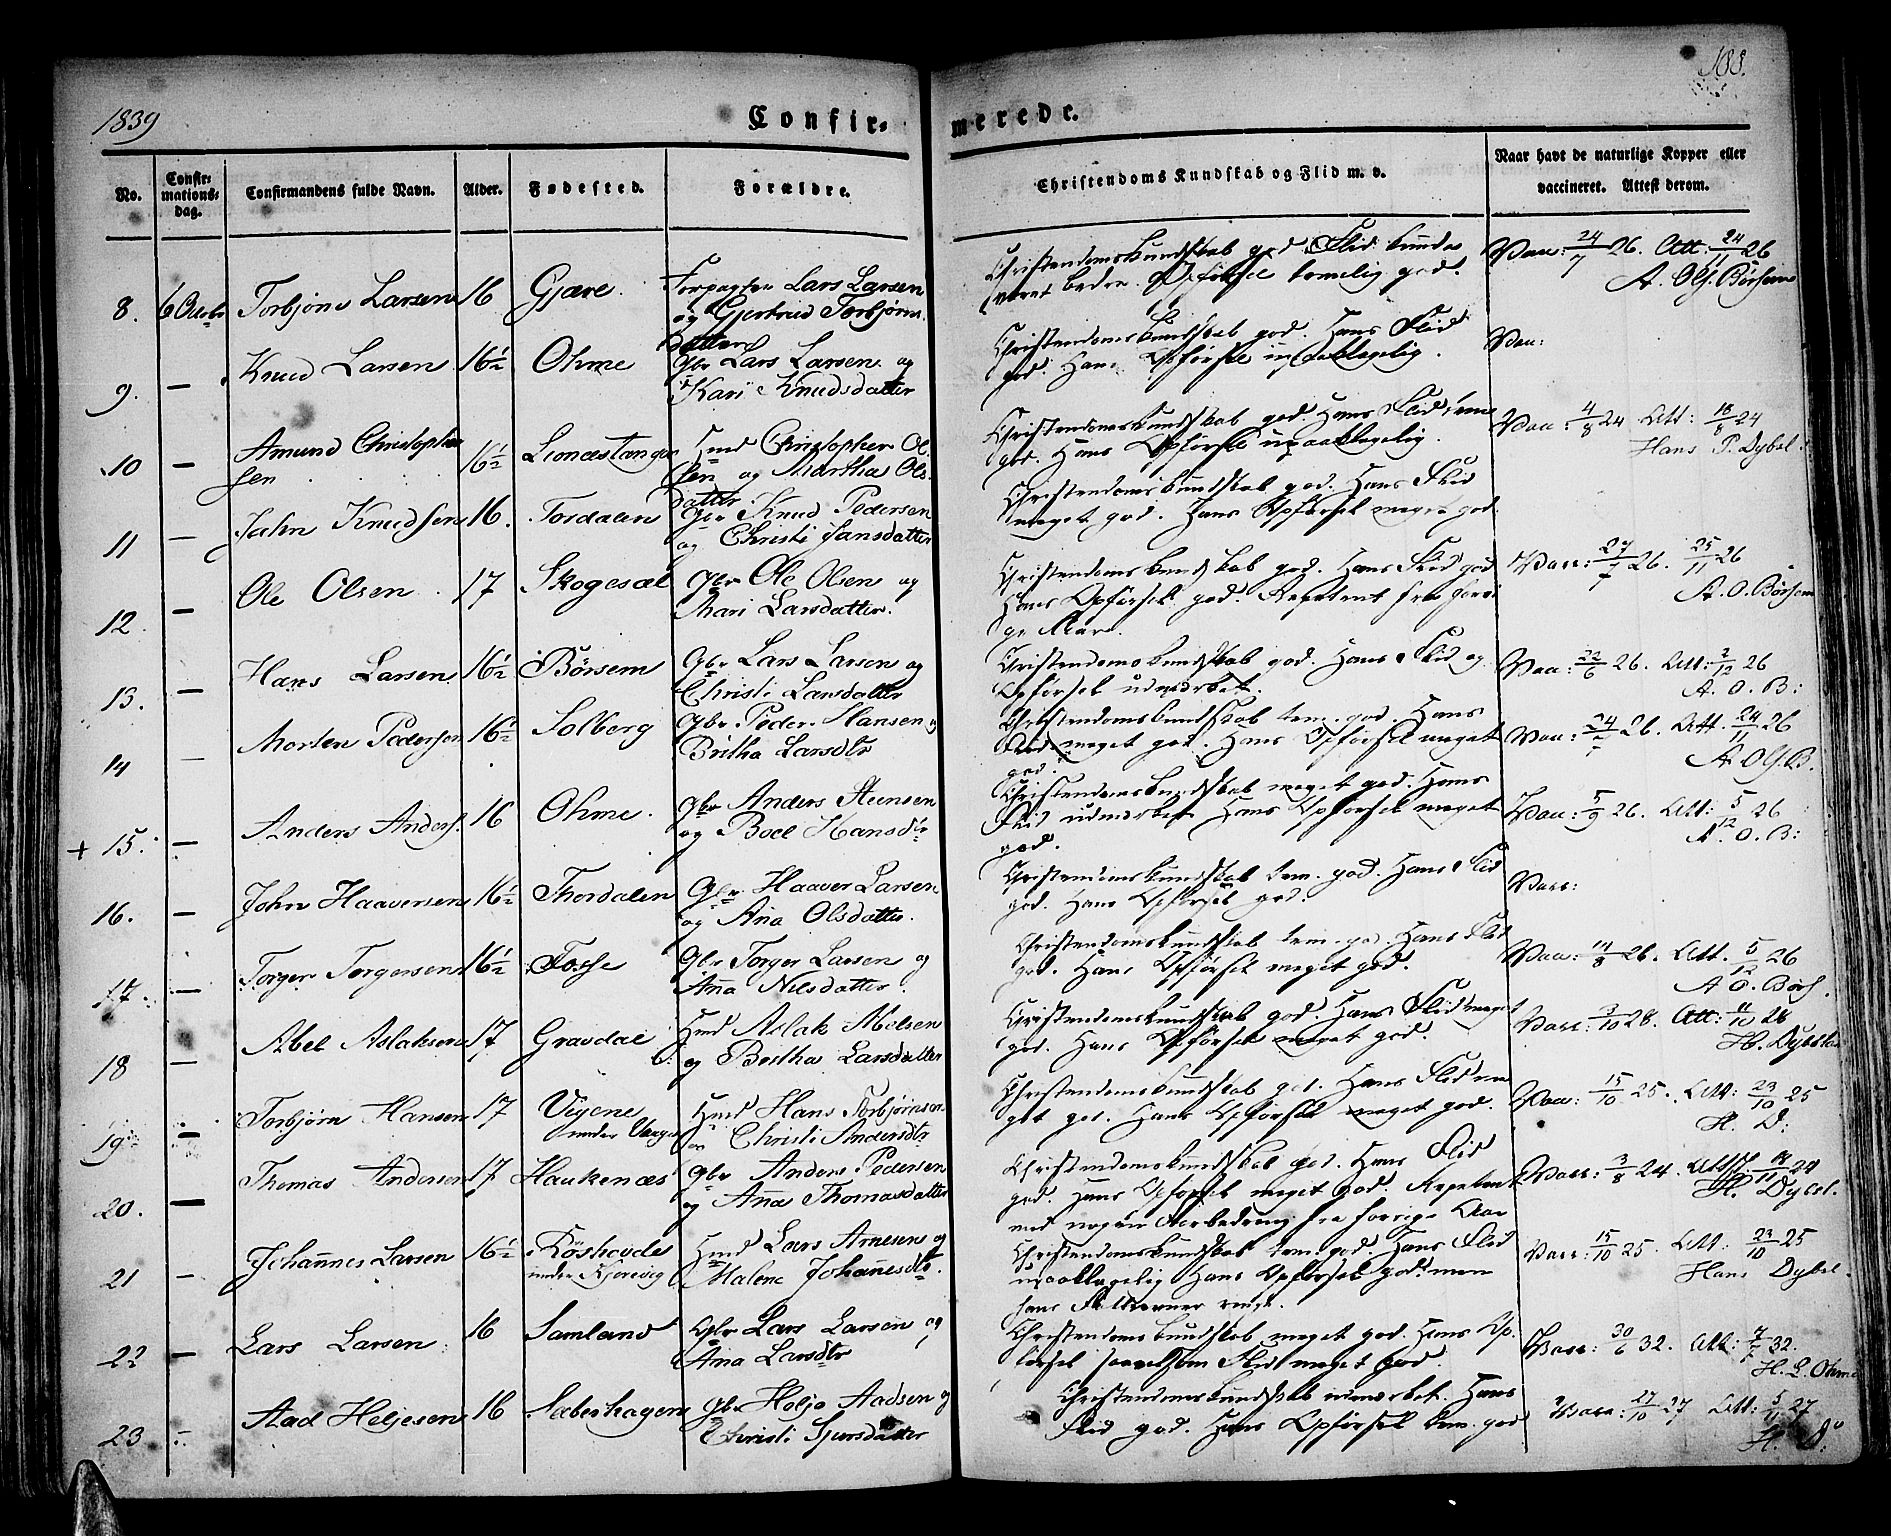 1839
Confir-
merede.
188.
No.
Confir-
mations-
dag.
Confirmandens fulde Navn.
Alder.
Fødested.
Forældre.
Christendoms Kundskab og Flid m. v.
Naar havt de naturlige Kopper eller
vaccineret. Attest derom.
8. 6 Octbr Torbjørn Larsen 16 Gjære. Forpagter Lars Larsen
og Gjertrud Torbjørns
datter
Christendomskundskab god. Flid kunde
været bedre. Opførsel temelig god.
Vac: 24/7 26. Att: 24/11 26
A. OG. Børsem
9. — Knud Larsen 16½ Ohme Gbr Lars Larsen og
Kari Knudsdatter
Christendomskundskab god. Hans Flid
god. Hans Opførsel upaaklagelig.
Vac:
10 — Amund Christophersen 16½ Leonastangen Hmd Christopher Ol-
sen og Martha Ols-
datter
Christendomskundskab god. Hans Flid
god. Hans Opførsel upaaklagelig.
Vac: 4/8 24 Att: 18/8 24
Hans P. Dybsl:
11 — Jahn Knudsen 16. Tordalen Gbr Knud Pedersen
og Christi Jansdatter
Christendomskundskab god. Hans Flid
meget god. Hans Opførsel meget god.
12. — Ole Olsen 17 Skogesæl Gbr Ole Olsen og
Mari Larsdatter.
Christendomskundskab god. Hans Flid god
Hans Opførsel god. Repetent fra forri
ge Aar.
Vacc: 27/7 26. 25/11 26
A. O. Børsem
13. — Hans Larsen 16½ Børsem Gbr Lars Larsen og
Christi Larsdatter
Christendomskundskab god. Hans Flid og
Opførsel udmærket.
Vac: 22/6 26. Att: 2/12 26
A. O. B:
14 — Morten Pedersen 16½ Solberg Gbr Peder Hansen og
Britha Larsdtr
Christendomskundskab tem. god. Hans
Flid meget god. Hans Opførsel meget
god.
Vac: 24/7 26. Att. 24/11 26
A. OG. B.
+ 15. — Anders Anders. 16 Ohme. Gbr Anders Steensen
og Boel Hansdtr
Christendomskundskab meget god. Hans
Flid udmærket Hans Opførsel meget
god.
Vac: 5/9 26. Att: 5/12 26
A. O. B:
16. — John Haaversen 16½ Thordalen Gbr Haaver Larsen
og Ana Olsdatter.
Christendomskundskab tem. god. Hans Flid
god. Hans Opførsel god.
Vacc:
17. — Torger Torgersen 16½ Fosse Gbr Torger Larsen og
Anna Nilsdatter
Christendomskundskab tem. god. Hans Flid
god. Hans Opførsel meget god.
Vac: 14/8 26. Att. 5/12 26
A. O. Børs.
18 — Abel Aslaksen 17 Gravdal Hmd Aslak Abelsen
og Britha Larsdatter
Christendomskundskab god. Hans Flid meget
god. Hans Opførsel meget god.
Vacc: 2/10 28. Att: 11/10 28
H. Dybsland
19 — Torbjørn Hansen 17 Vigene
under Vaage
Hmd Hans Torbjørnsen
og Christi Andersdtr
Christendomskundskab god. Hans Flid me
get god. Hans Opførsel meget god.
Vac: 15/10 25. Att: 23/10 25
H. D:
20. — Thomas Andersen 17 Haukenæs Gbr Anders Pedersen
og Ana Thomasdatter
Christendomskundskab god. Hans Flid
god. Hans Opførsel meget god. Repetent
med nogen Forbedring fra forrige Aar
Vacc: 3/8 24. Att: 14/11 24
H. Dybsl.
21 — Johannes Larsen 16½ Røshovde
under Kjerevig
Hmd Lars Arnesen og
Malene Johannesdtr.
Christendomskundskab tem. god. Hans Flid
upaaklagelig Hans Opførsel god men
Vacc: 15/10 25. Att: 23/10 25
Hans Dybsl.
22 — Lars Larsen 16 Samland Gbr Lars Larsen og
Ana Larsdtr
Christendomskundskab meget god. Hans Op-
førsel saavelsom Flid meget god.
Vacc: 30/6 32. Att: 7/7 32.
H. L. Ohme
23 Aad Heljesen 16 Sæbershagen Gbr Helje Aadsen og
Christi Sjursdatter
Christendomskundskab udmærket. Hans
Flid god. Hans Opførsel tem. god
Vacc: 27/10 27 Att: 5/11 27
H. D: